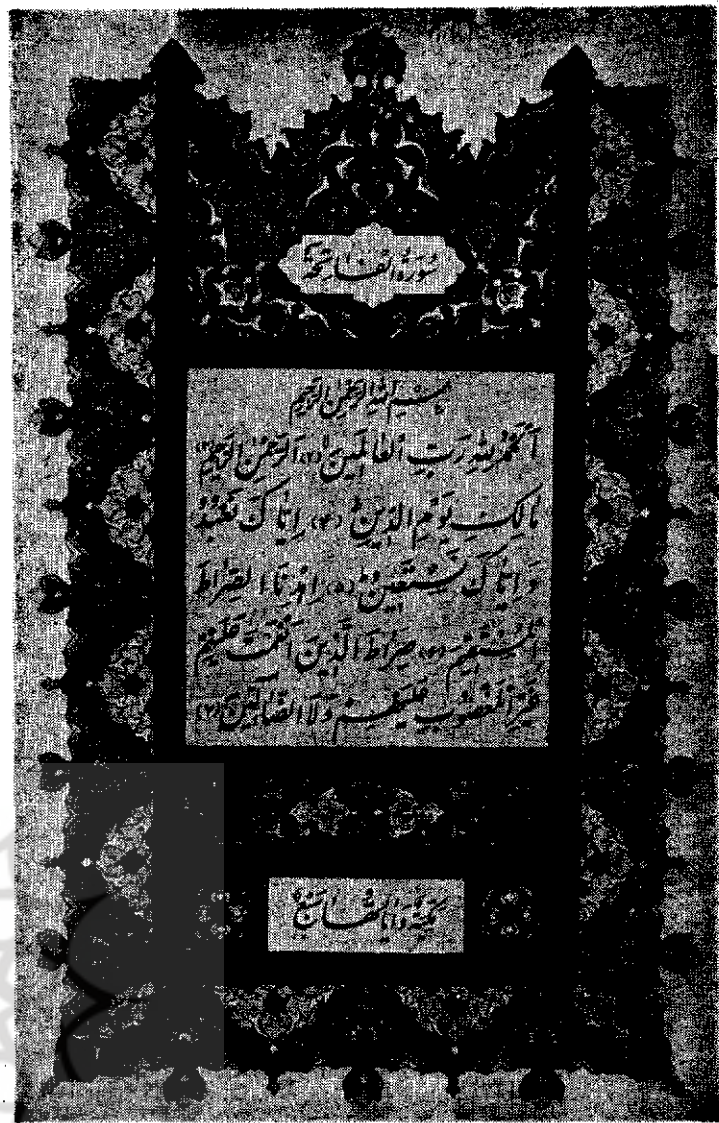 سُورَةُ الفَاتِحَة
بِسْمِ اللهِ الرَّحْمٰنِ الرَّحِيمِ
اَلْحَمْدُ لِلّٰهِ رَبِّ الْعَالَمِينَ (۲) اَلرَّحْمٰنِ الرَّحِيمِ (۳)
مَالِكِ يَوْمِ الدِّينِ (۴) اِيَّاكَ نَعْبُدُ
وَاِيَّاكَ نَسْتَعِينُ (۵) اِهْدِنَا الصِّرَاطَ
الْمُسْتَقِيمَ (۶) صِرَاطَ الَّذِينَ اَنْعَمْتَ عَلَيْهِمْ
غَيْرِ الْمَغْضُوبِ عَلَيْهِمْ وَلَا الضَّالِّينَ (۷)
مَكِّيَّةٌ وَاٰيَاتُهَا سَبْعٌ